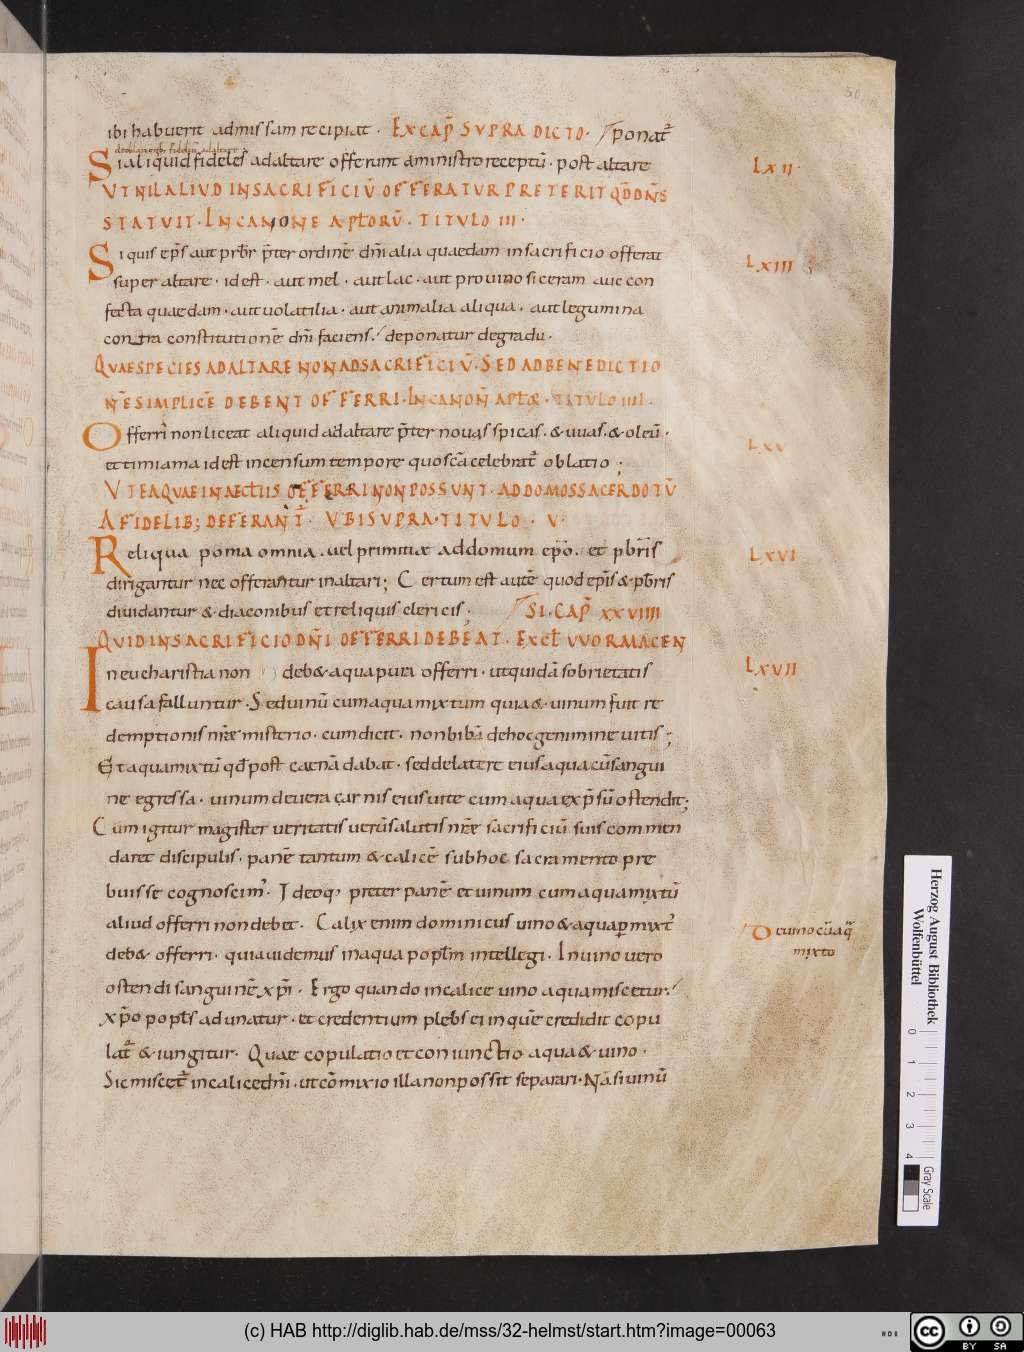 50
ibi habuerit admissam recipiat. EX CAP̄ SUPRA DICTO. ponat᷒
de oblationib; fideliū ad altare
Si aliquid fideles ad altare offerunt a ministro receptū. post altare
LXII
UT NIL ALIUD IN SACRIFICIŪ OFFERATUR PRETERIT QD̄ DN̄S
STATUIT. IN CANONE APL̄ORŪ. TITULO III.
Si quis ep̄s aut pr̄br p̄ter ordinē dn̄i alia quaedam in sacrificio offerat
LXIII
super altare. id est. aut mel. aut lac. aut pro uino siceram aut con
fecta quaedam. aut uolatilia. aut animalia aliqua. aut legumina
contra constitutionē dn̄i faciens. deponatur de gradu.
QUAE SPECIES AD ALTARE NON AD SACRIFICIŪ. SED AD BENEDICTIO
NĒ SIMPLICĒ DEBENT OFFERRI. IN CANON̄ APL̄OR̄. TITULO IIII.
Offerri non liceat aliquid ad altare p̄ter nouas spicas. & uuas. & oleū.
LXV
et timiama id est incensum tempore quo sc̄a celebrat᷒ oblatio;
UT EA QUAE IN AECL̄IIS OFFERRI NON POSSUNT. AD DOMOS SACERDOTŪ
A FIDELIB; DEFERANT᷒. UBI SUPRA. TITULO. V.
Reliqua poma omnia. uel primitiæ ad domum ep̄o. et pb̄ris
LXVI
dirigantur nec offerantur in altari; Certum est autē quod ep̄is & pb̄ris
diuidantur & diaconibus et reliquis clericis; SI. CAP̄ XXVIIII
QUID IN SACRIFICIO DN̄I OFFERRI DEBEAT. EXCL̄ UUORMACEN
In eucharistia non deb& aqua pura offerri. ut quidā sobrietatis
LXVII
causa falluntur. Sed uinū cum aqua mixtum quia & uinum fuit re
demptionis nr̄æ misterio. cum dicit. non bibā de hoc genimine uitis;
Et aqua mixtū qd̄ post caenā dabat. sed de latere eius aqua cū sangui
ne egressa. uinum de uera carnis eius uite cum aqua exp̄sū ostendit;
Cum igitur magister ueritatis uerū salutis nr̄æ sacrificiū suis commen
daret discipulis. panē tantum & calicē sub hoc sacramento pre
buisse cognoscim᷒. Ideoq; preter panē et uinum cum aqua mixtū
aliud offerri non debet. Calix enim dominicus uino & aqua ꝑmixt᷒
De uino cū aq̄
mixto
deb& offerri. quia uidemus in aqua popl̄m intellegi. In uino uero
ostendi sanguinē xp̄i. Ergo quando in calice uino aqua miscetur.
xp̄o popl̄s adunatur. et credentium plebs ei in quē credidit copu
lat᷒ & iungitur. Quae copulatio et coniunctio aqua & uino.
Sic miscet᷒ in calice dn̄i. ut cōmixio illa non possit separari. Nā si uinū
Herzog August Bibliothek
Wolfenbüttel
0 1 2 3 4
Gray Scale
(c) HAB http://diglib.hab.de/mss/32-helmst/start.htm?image=00063
cc BY SA